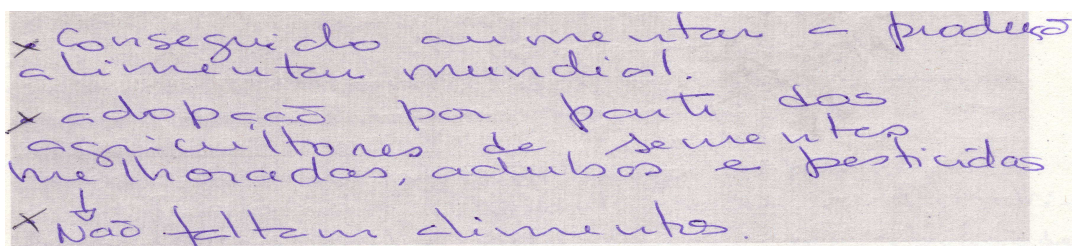 x Conseguido aumentar a produção
alimentar mundial.
x adopção por parte dos
agricultores de sementes
melhoradas, adubos e pesticidas
↓
x Não faltam alimentos.